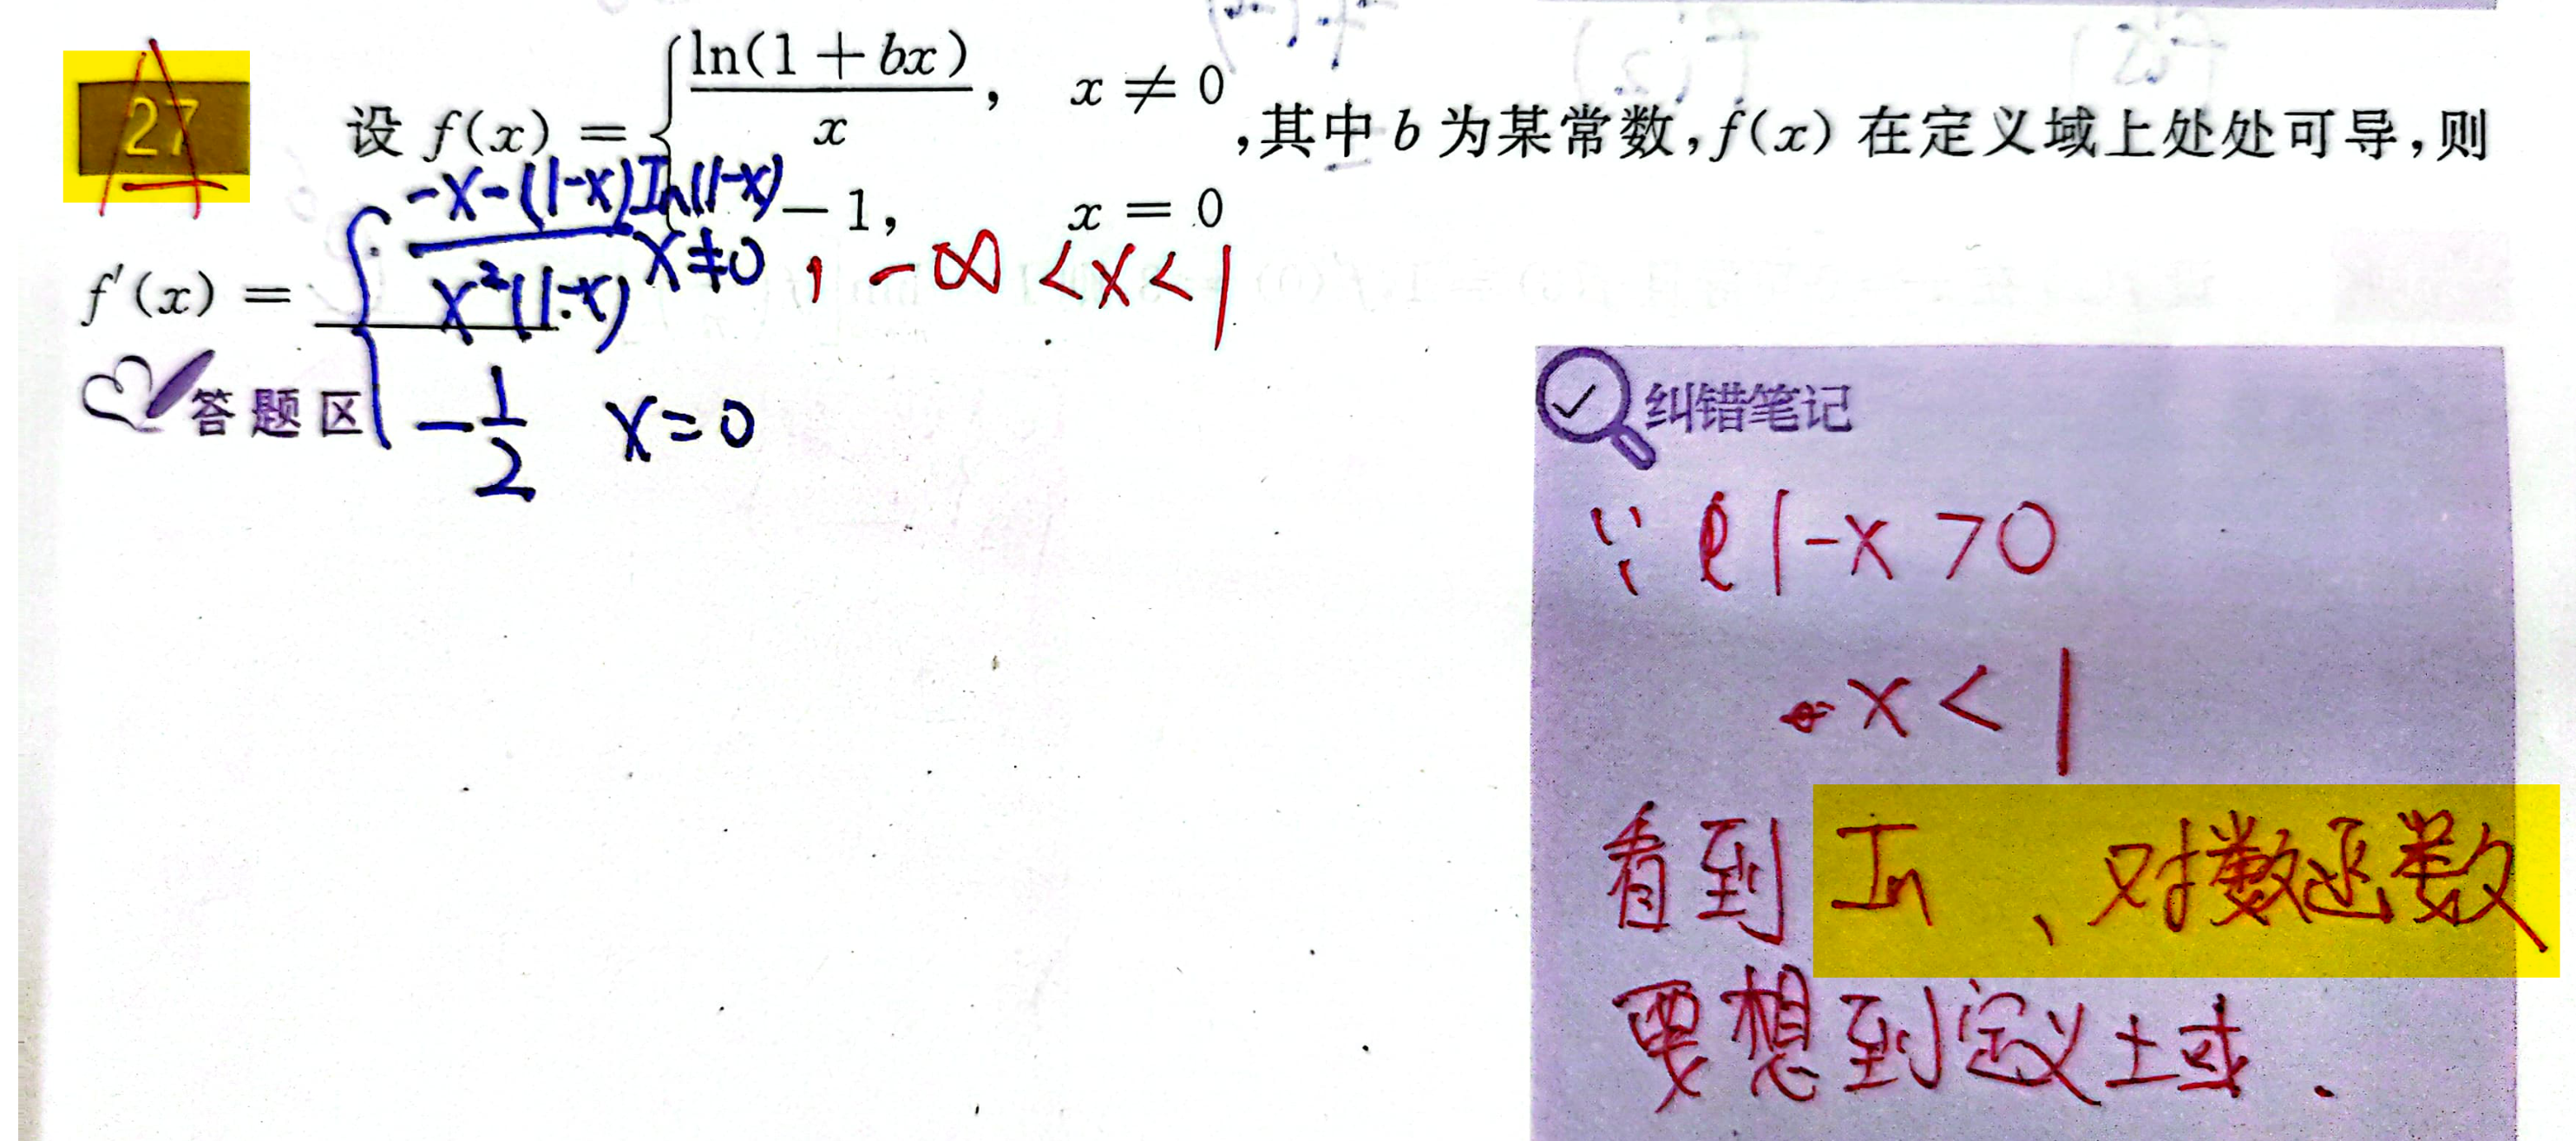 27
A
设 f(x) = { ln(1 + bx) / x, x ≠ 0
-1, x = 0
,其中 b 为某常数,f(x) 在定义域上处处可导,则
f′(x) = { -x-(1-x)In(1-x) / x²(1-x) x≠0 , -∞ <x< 1
-1/2 x=0
答题区
纠错笔记
∵ 1-x >0
x < 1
看到 In 、对数函数
要想到定义域.